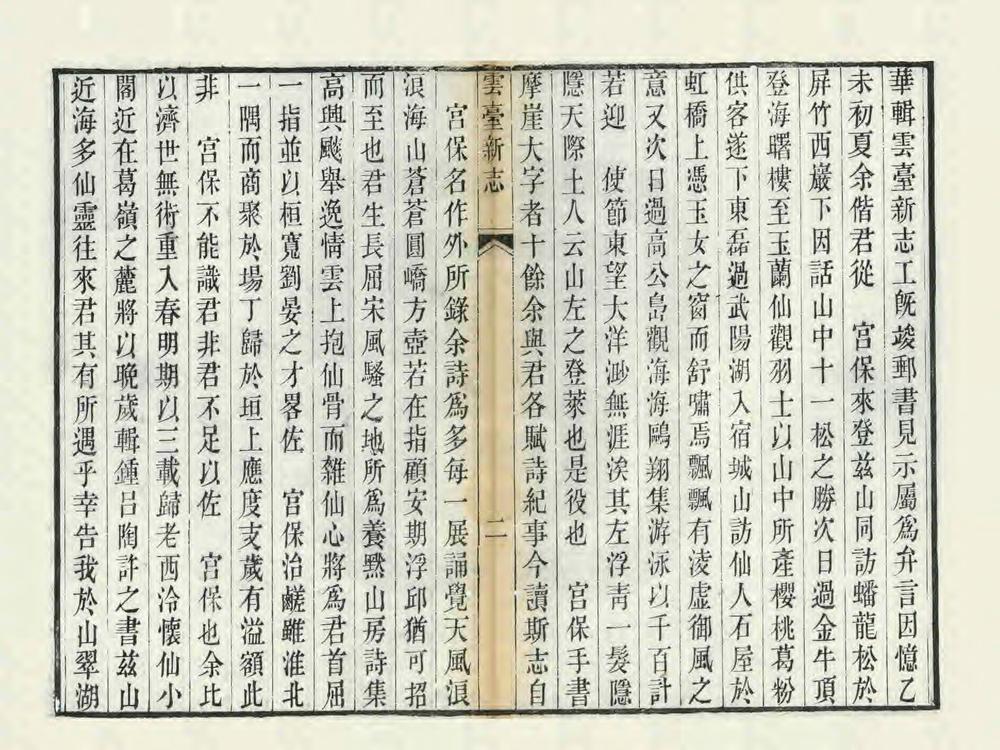 華輯雲臺新志工旣竣郵書見示屬爲弁言因憶乙
未初夏余偕君從　宮保來登茲山同訪蟠龍松於
屏竹西巖下因話山中十一松之勝次日過金牛頂
登海曙樓至玉蘭仙觀羽士以山中所產櫻桃葛粉
供客遂下東磊過武陽湖入宿城山訪仙人石屋於
虹橋上憑玉女之窗而舒嘯焉飄飄有淩虛御風之
意又次日過高公島觀海海鷗翔集游泳以千百計
若迎　使節東望大洋渺無涯涘其左浮靑一髮隱
隱天際土人云山左之登萊也是役也　宮保手書
摩崖大字者十餘余與君各賦詩紀事今讀斯志自
雲臺新志　二
宮保名作外所錄余詩爲多每一展誦覺天風浪
浪海山蒼蒼圓嶠方壺若在指顧安期浮邱猶可招
而至也君生長屈宋風騷之地所爲養默山房詩集
高興颷舉逸情雲上抱仙骨而雜仙心將爲君首屈
一指並以桓寬劉晏之才畧佐　宮保治鹺雖淮北
一隅而商聚於場丁歸於垣上應度支歲有溢額此
非　宮保不能識君非君不足以佐　宮保也余比
以濟世無術重入春明期以三載歸老西泠懷仙小
閣近在葛嶺之麓將以晚歲輯鍾呂陶許之書茲山
近海多仙靈往來君其有所遇乎幸告我於山翠湖